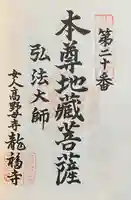 第二十番
本尊地蔵菩薩
弘法大師
女人高野山
龍福寺